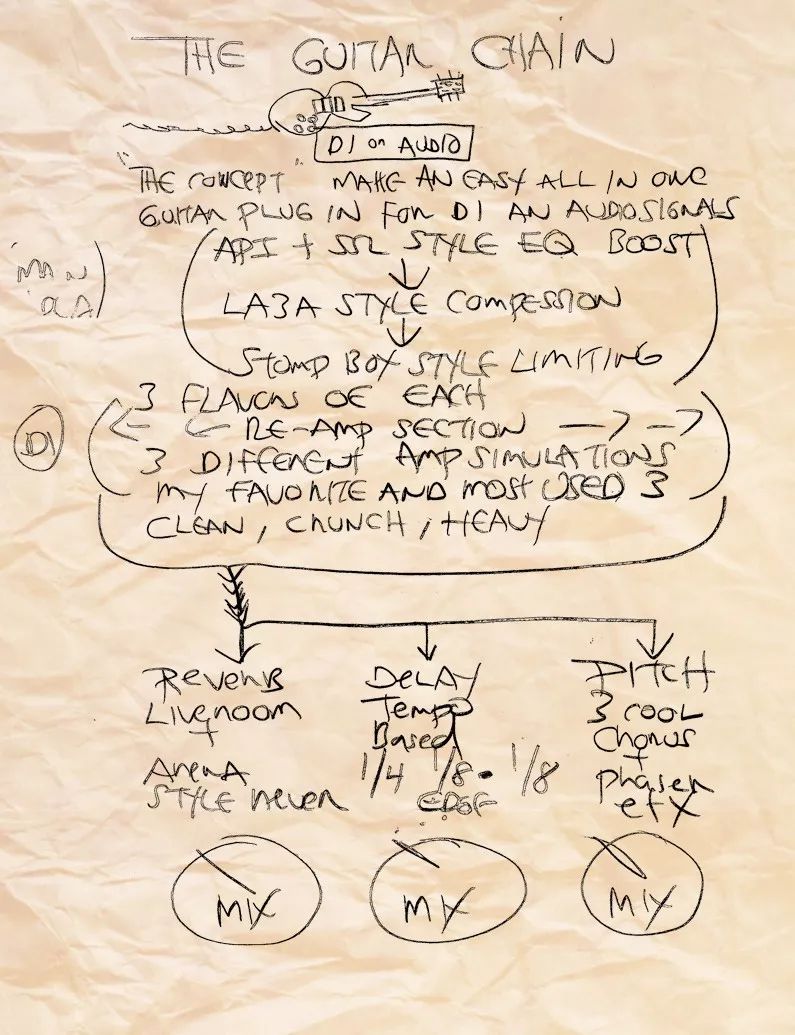 THE GUITAR CHAIN
DI or AUDIO
"THE CONCEPT" MAKE AN EASY ALL IN ONE
GUITAR PLUG IN FOR DI AN AUDIOSIGNALS
API + SSL STYLE EQ BOOST
MAIN
LA3A STYLE COMPESSION
STOMP BOX STYLE LIMITING
3 FLAVORS OF EACH
DI
RE-AMP SECTION
3 DIFFERENT AMP SIMULATIONS
MY FAVORITE AND MOST USED 3
CLEAN, CRUNCH, HEAVY
REVERB DELAY PITCH
Liveroom Tempo 3 COOL
+ Based Chorus
+
Arena 1/4 1/8. 1/8 Phaser
STYLE rever EDGE efx
MIX MIX MIX